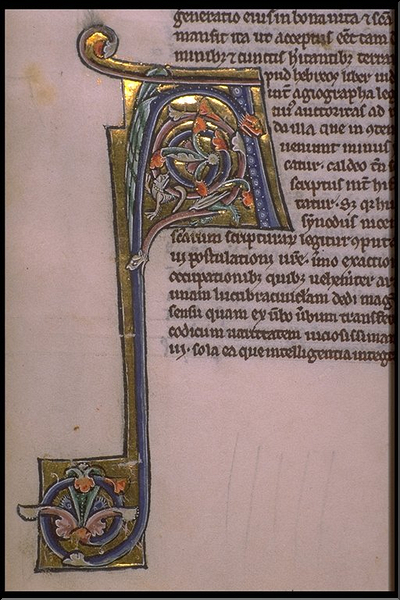 generatio eius in bona uita & sc̄a
mansit ita ut acceptus eēt tam
minibꝫ & cunctis hītantibꝫ terra
Apud hebreos liber iud
int̄ agiographa leg
cuiꝰ auctoritas ad
da illa que in
ueniunt minus
catur. caldeo tn̄
scriptus int̄ his
tatur. Sꝫ
synodus nicen
scarum scripturarū legitur cōputa
ui postulationi ur̄e. immo exaction
occupationibꝫ quibꝫ uehemēter ar
unam lucubratiunculam dedi mag
sensu quam ex ūbo ūbum transfere
codicum uarietatem uiciosissimam
ui. sola ea que intelligentia integr